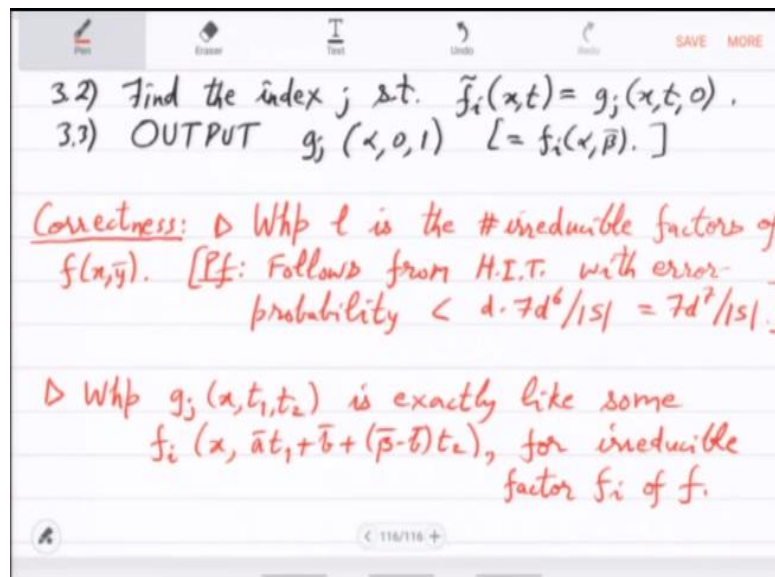 Pen Eraser Text Undo Redo SAVE MORE
3.2) Find the index j s.t. f̃ᵢ(x,t) = gⱼ(x,t,0).
3.3) OUTPUT gⱼ(α,0,1) [= fᵢ(α,β̄).]
Correctness: ▷ Whp l is the #irreducible factors of
f(x,ȳ). [Pf: Follows from H.I.T. with error-
probability < d·7d⁶/|S| = 7d⁷/|S|.]
▷ Whp gⱼ(x,t₁,t₂) is exactly like some
fᵢ(x, āt₁+b̄+(β̄-b̄)t₂), for irreducible
factor fᵢ of f.
< 116/116 +